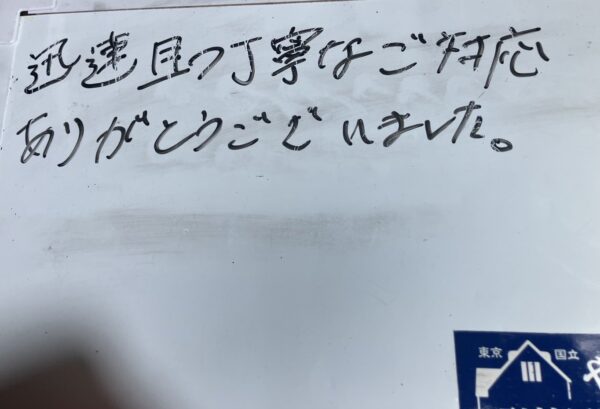 迅速且つ丁寧なご対応
ありがとうございました。
東京 国立